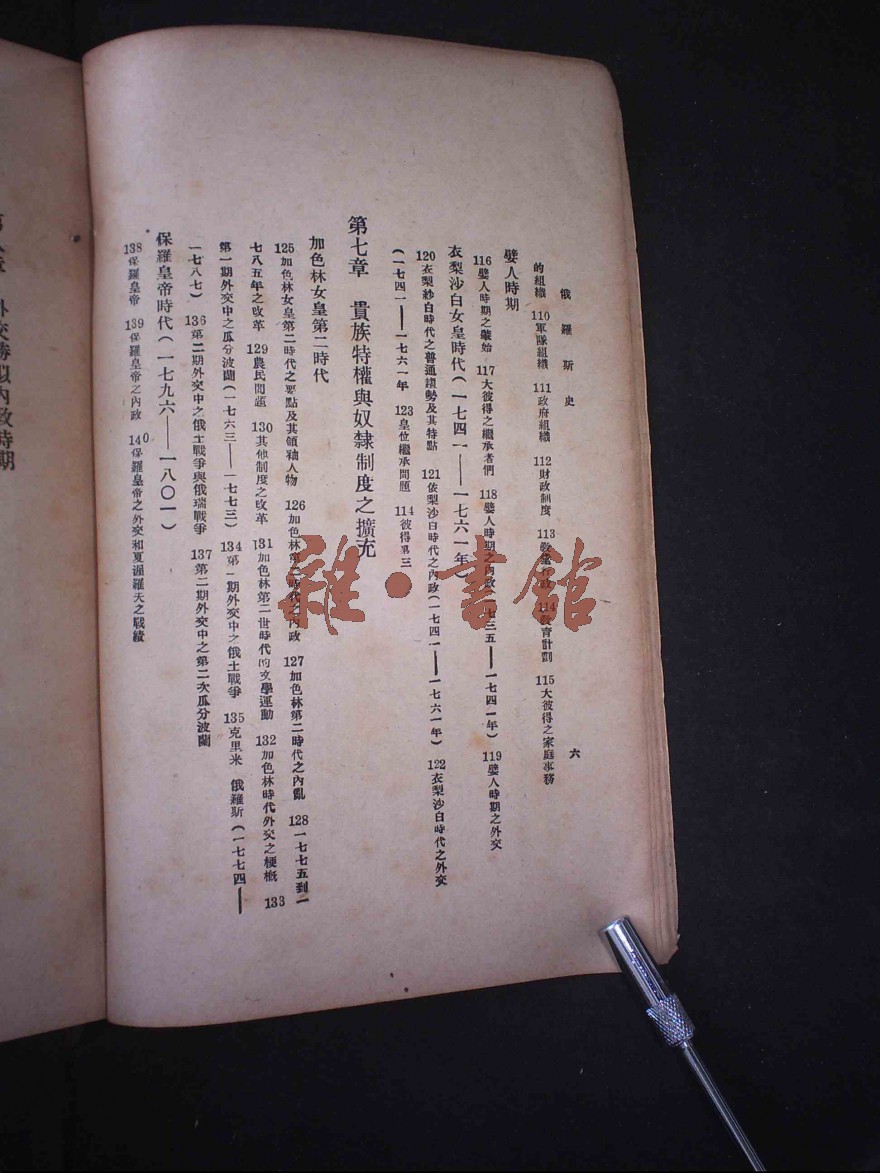 俄羅斯史
六
的組織 110軍隊組織 111政府組織 112財政制度 113教 114教育計劃 115大彼得之家庭事務
嬖人時期
116嬖人時期之肇始 117大彼得之繼承者們 118嬖人時期之內政(一七三五——一七四一年) 119嬖人時期之外交
衣梨沙白女皇時代(一七四一——一七六一年)
120衣梨紗白時代之普通趨勢及其特點 121依梨沙白時代之內政(一七四一——一七六一年) 122衣梨沙白時代之外交
(一七四一——一七六一年 123皇位繼承問題 114彼得第三
第七章 貴族特權與奴隸制度之擴充
加色林女皇第二時代
125加色林女皇第二時代之要點及其領袖人物 126加色林第二時代之內政 127加色林第二時代之內亂 128一七七五到一
七八五年之改革 129農民問題 130其他制度之改革 131加色林第二世時代的文學運動 132加色林時代外交之梗概 133
第一期外交中之瓜分波蘭(一七六三——一七七三) 134第一期外交中之俄土戰爭 135克里米 俄羅斯(一七七四——
一七八七) 136第二期外交中之俄土戰爭與俄瑞戰爭 137第二期外交中之第二次瓜分波蘭
保羅皇帝時代(一七九六——一八〇一)
138保羅皇帝 139保羅皇帝之內政 140保羅皇帝之外交和夏渥羅夫之戰績
外交勝似內政時期
雜·書館